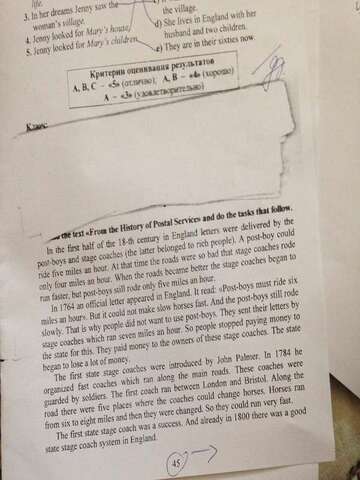 life.
3. In her dreams Jenny saw the
woman's village.
4. Jenny looked for Mary's house,
5. Jenny looked for Mary's children.
the village.
d) She lives in England with her
husband and two children.
e) They are in their sixties now.
Критерии оценивания результатов
А, В, С – «5» (отлично); А, В – «4» (хорошо)
А – «3» (удовлетворительно)
Класс
the text «From the History of Postal Service» and do the tasks that follow.
In the first half of the 18-th century in England letters were delivered by the
post-boys and stage coaches (the latter belonged to rich people). A post-boy could
ride five miles an hour. At that time the roads were so bad that stage coaches rode
only four miles an hour. When the roads became better the stage coaches began to
run faster, but post-boys still rode only five miles an hour.
In 1764 an official letter appeared in England. It read: «Post-boys must ride six
miles an hour». But it could not make slow horses fast. And the post-boys still rode
slowly. That is why people did not want to use post-boys. They sent their letters by
stage coaches which ran seven miles an hour. So people stopped paying money to
the state for this. They paid money to the owners of these stage coaches. The state
began to lose a lot of money.
The first state stage coaches were introduced by John Palmer. In 1784 he
organized fast coaches which ran along the main roads. These coaches were
guarded by soldiers. The first coach ran between London and Bristol. Along the
road there were five places where the coaches could change horses. Horses ran
from six to eight miles and then they were changed. So they could run very fast.
The first state stage coach was a success. And already in 1800 there was a good
state stage coach system in England.
45